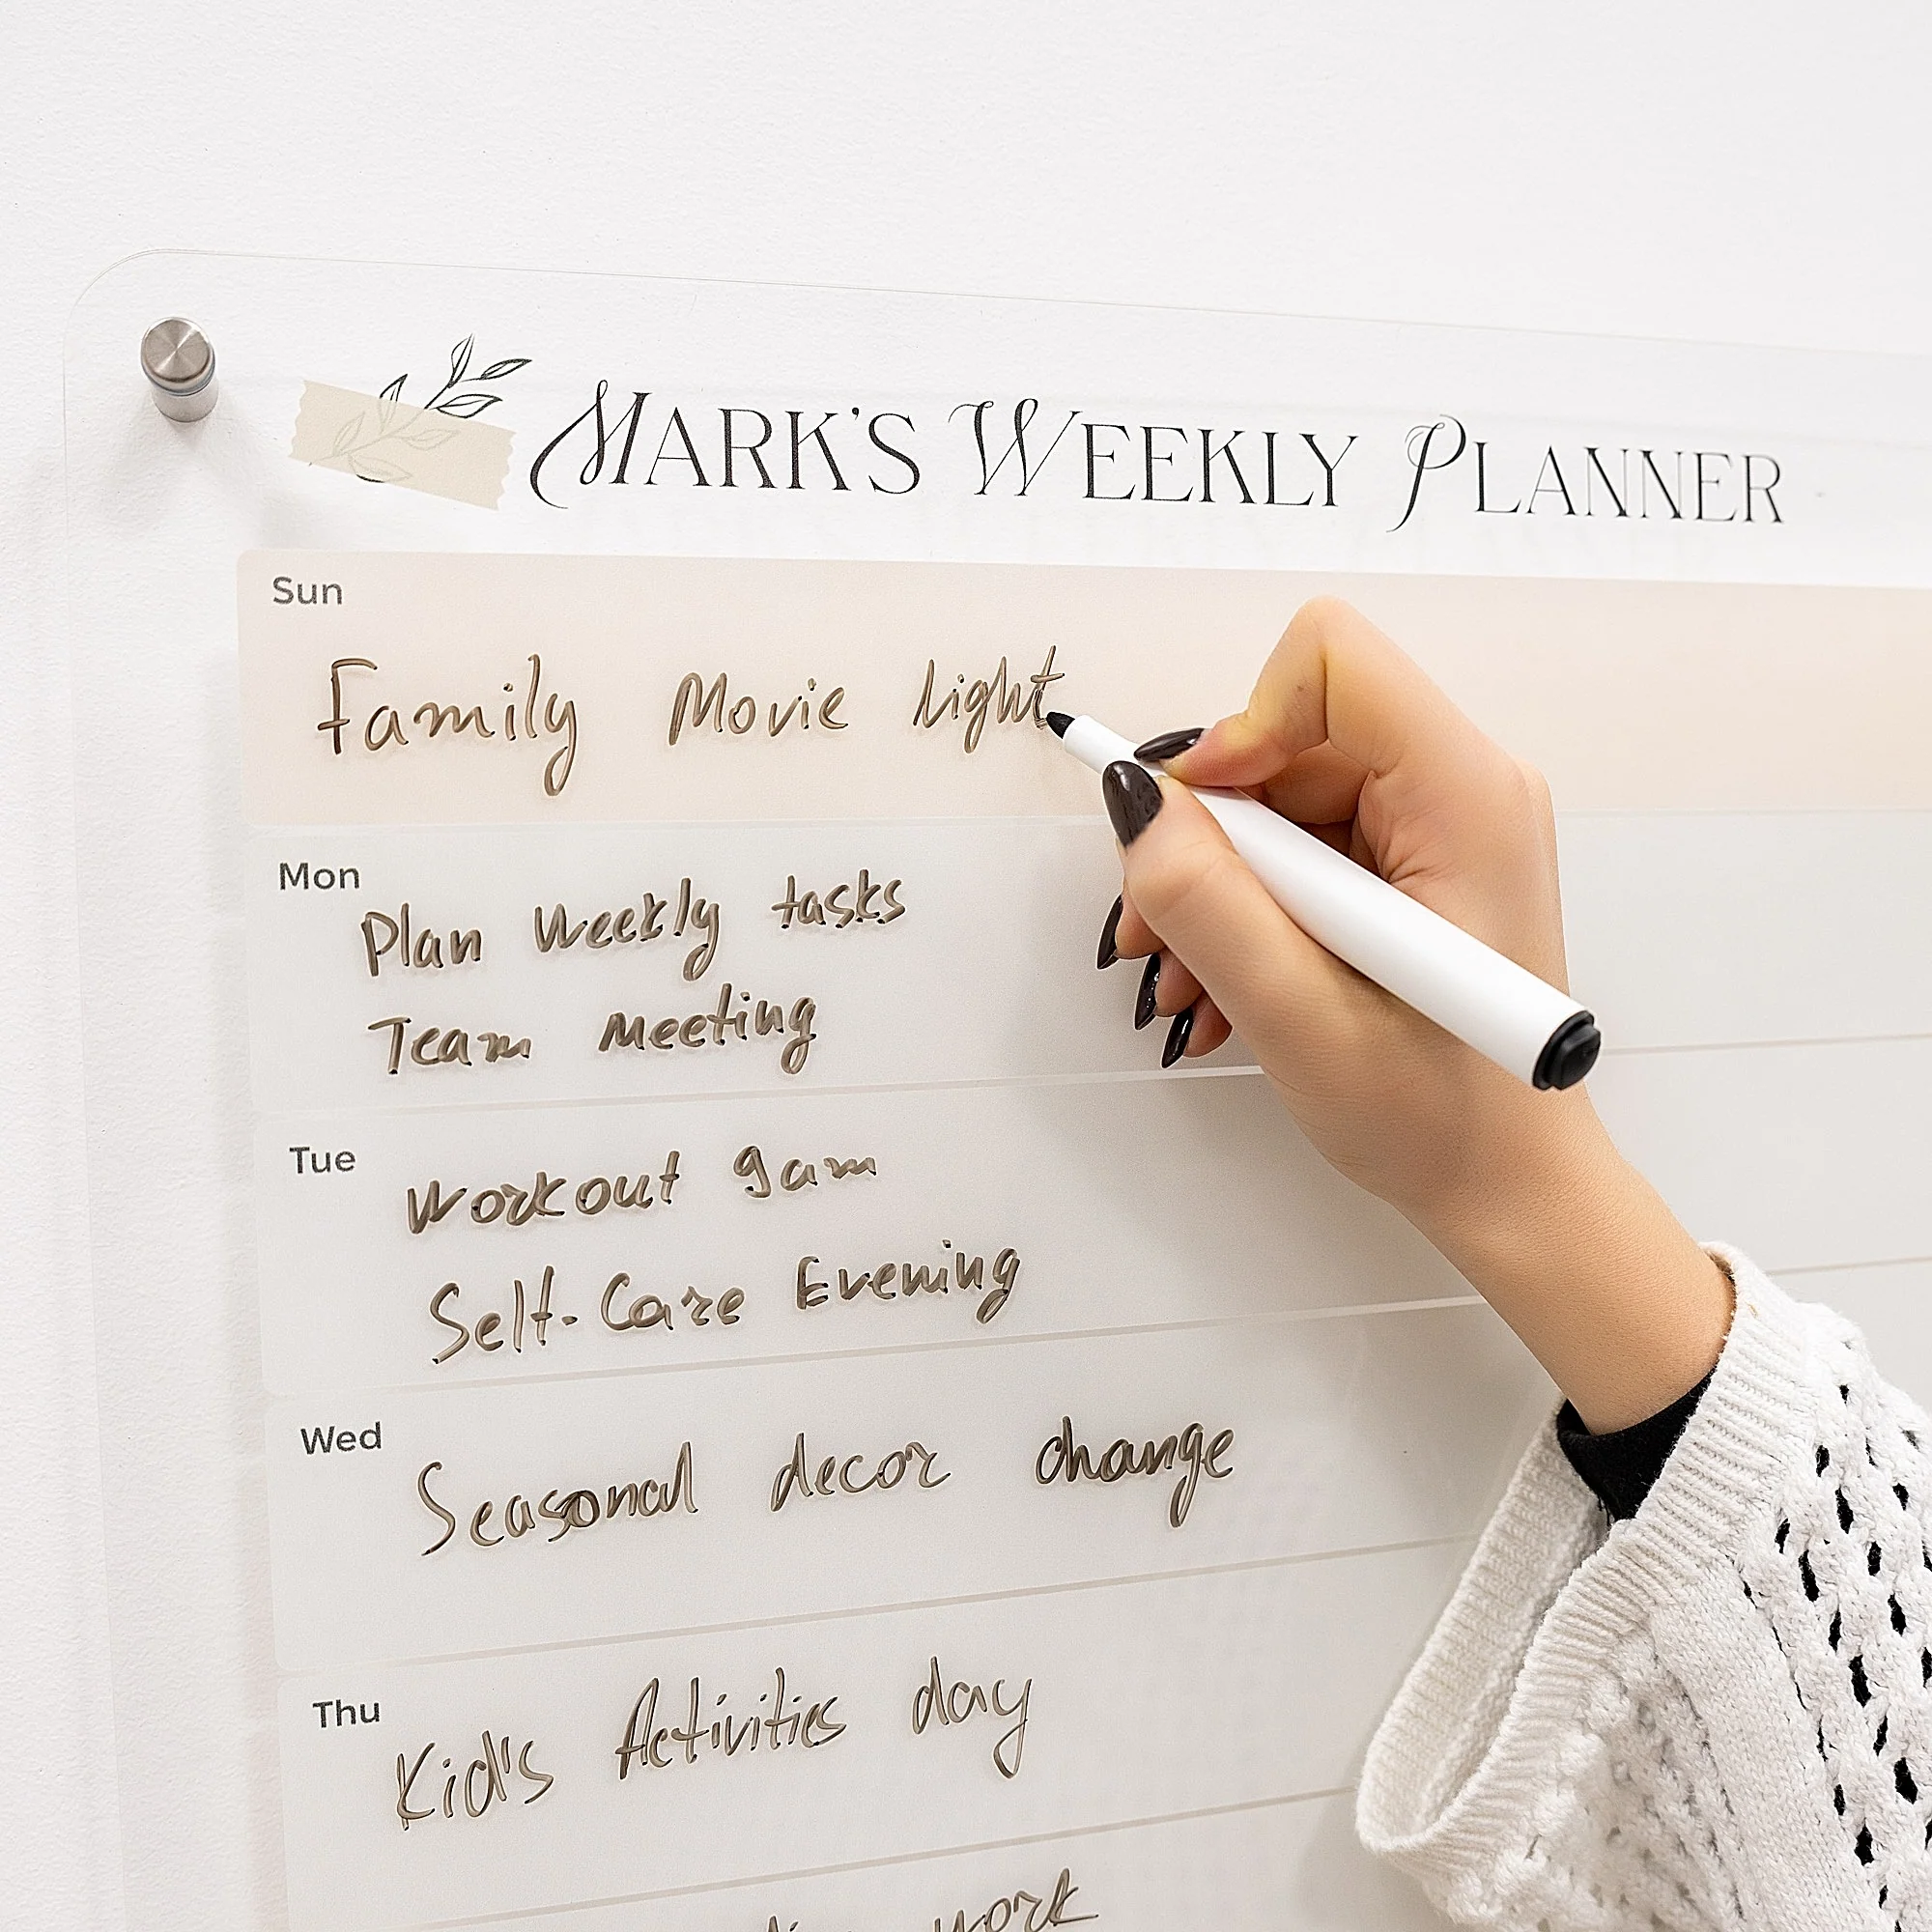 MARK'S WEEKLY PLANNER
Sun
Family Movie Light
Mon
Plan Weekly tasks
Team Meeting
Tue
Workout 9am
Self-Care Evening
Wed
Seasonal decor change
Thu
Kid's Activities day
work